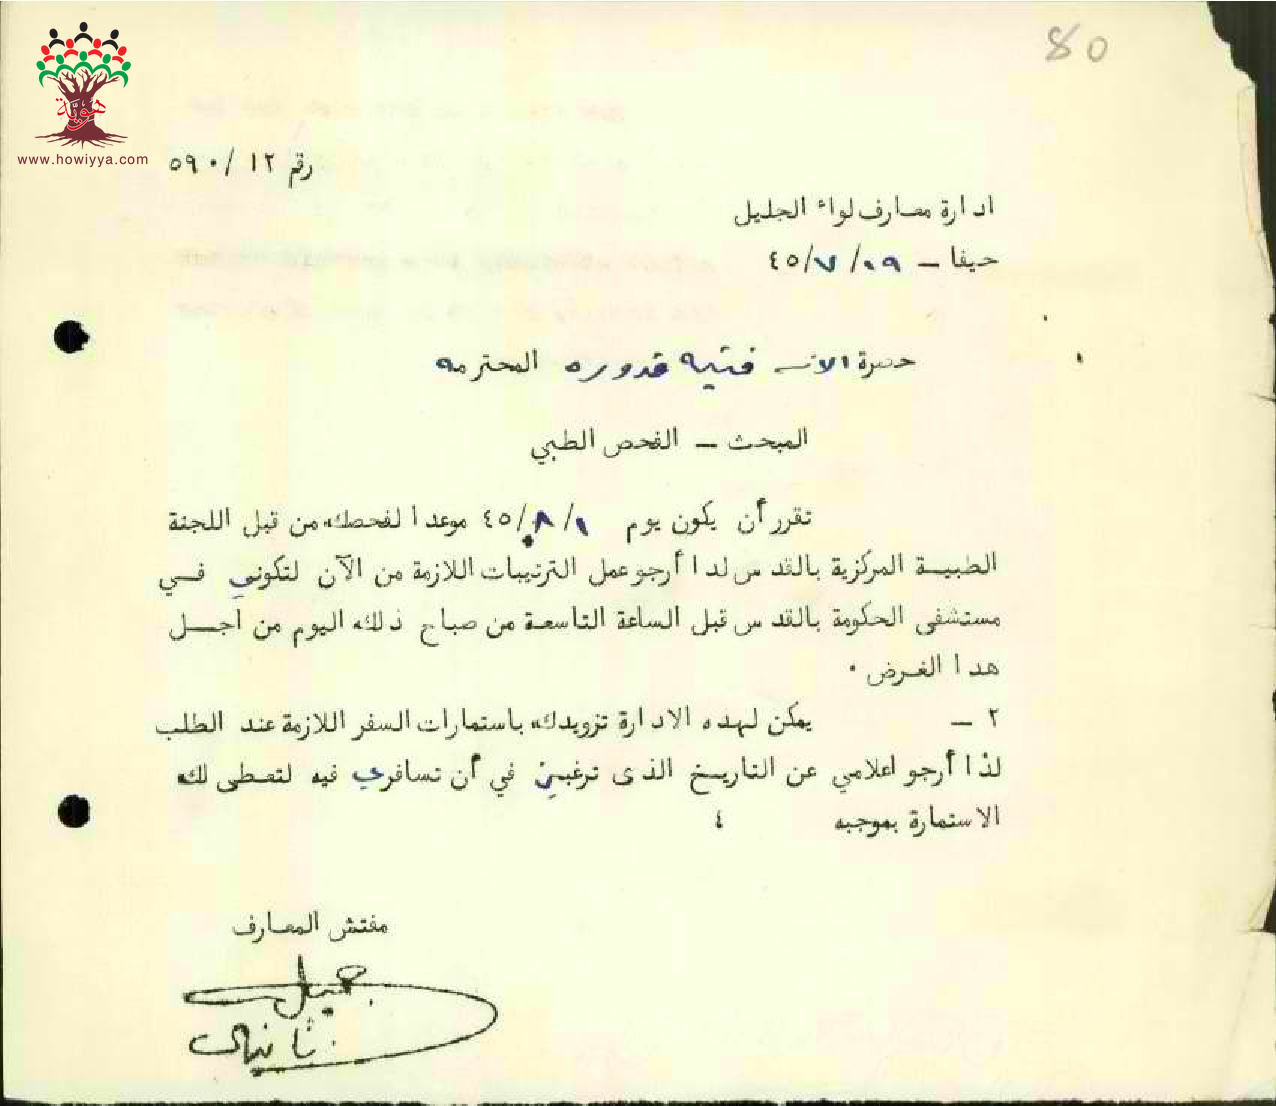 80
هوية
www.howiyya.com
رقم ١٢ /٥٩٠
ادارة معارف لواء الجليل
حيفا – ٠٩/ ٧/ ٤٥
حضرة الانسه فتيه قدوره المحترمه
المبحث – الفحص الطبي
تقرر أن يكون يوم ١/ ٨/ ٤٥ موعدا لفحصك من قبل اللجنة
الطبيـة المركزية بالقدس لدا أرجو عمل الترتيبات اللازمة من الآن لتكوني فـي
مستشفى الحكومة بالقدس قبل الساعة التاسعة من صباح ذلك اليوم من اجـل
هدا الغرض .
٢ – يمكن لهده الادارة تزويدك باستمارات السفر اللازمة عند الطلب
لذا أرجو اعلامي عن التاريخ الذى ترغبين في أن تسافري فيه لتعطى لك
الاستمارة بموجبه ٤
مفتش المعارف
جميل